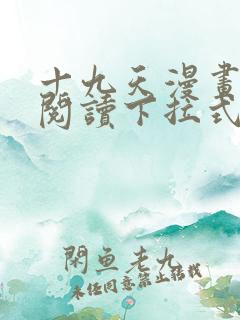 十九天漫畫
閱讀下拉式
閑魚老九
未經同意禁止轉載